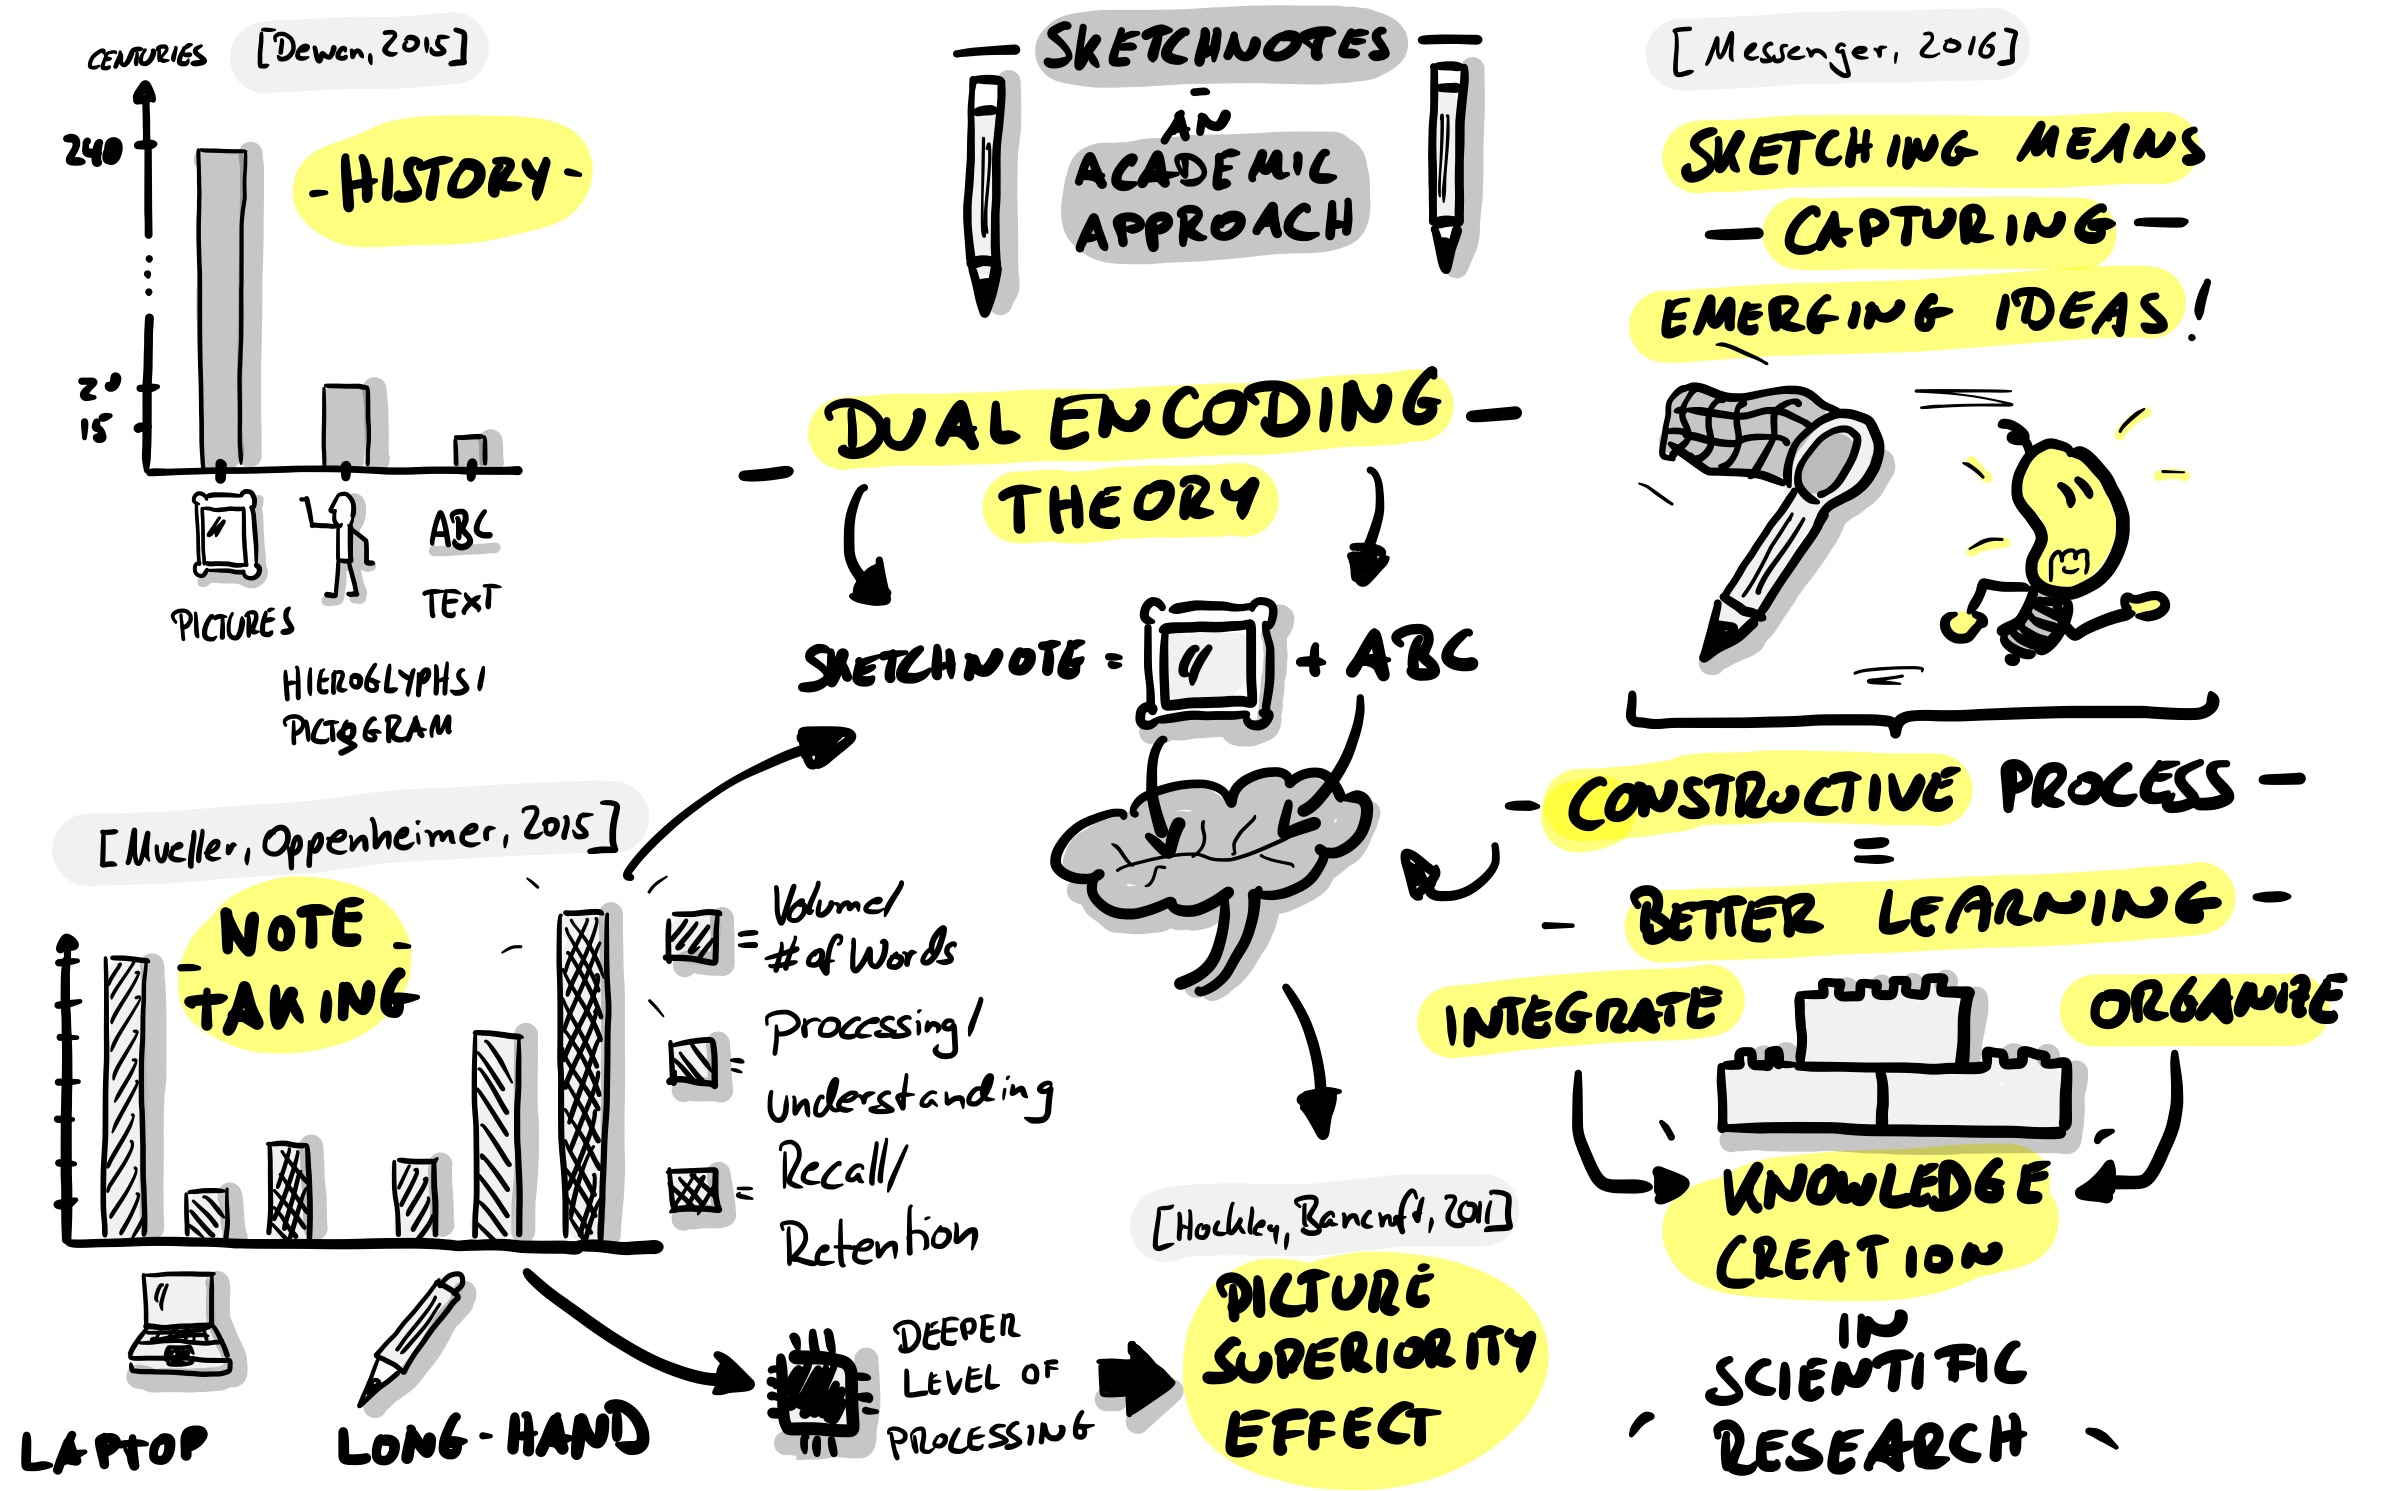 CENTURIES
[Dewan, 2015]
- HISTORY -
240
20
15
ABC
PICTURES
TEXT
HIEROGLYPHS/
PICTOGRAM
SKETCHNOTES
-
AN
ACADEMIC
APPROACH
[Messenger, 2016]
SKETCHING MEANS
- CAPTURING -
EMERGING IDEAS!
- DUAL ENCODING -
THEORY
SKETCHNOTE = + ABC
- CONSTRUCTIVE PROCESS -
=
- BETTER LEARNING -
INTEGRATE
ORGANIZE
KNOWLEDGE
CREATION
IN
SCIENTIFIC
RESEARCH
[Mueller, Oppenheimer, 2015]
NOTE -
- TAKING
= Volume/
# of Words
= Processing/
understanding
= Recall/
Retention
LAPTOP
LONG-HAND
DEEPER
LEVEL OF
PROCESSING
[Hockley, Bancroft, 2011]
PICTURE
SUPERIORITY
EFFECT